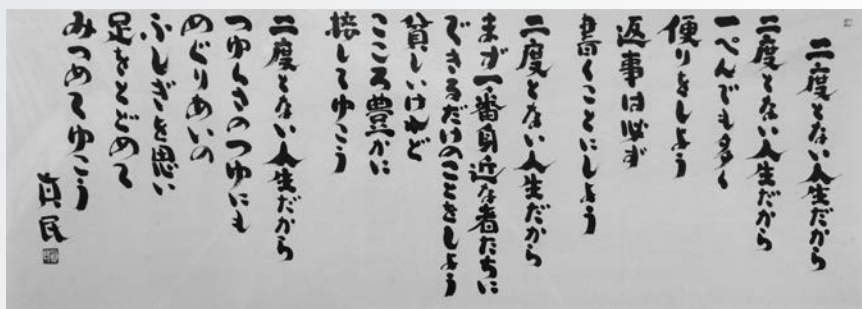 二度とない人生だから
二度とない人生だから
一ぺんでも多く
便りをしよう
返事は必ず
書くことにしよう
二度とない人生だから
まず一番身近な者たちに
できるだけのことをしよう
貧しいけれど
こころ豊かに
接してゆこう
二度とない人生だから
つゆくさのつゆにも
めぐりあいの
ふしぎを思い
足をとどめて
みつめてゆこう
真民